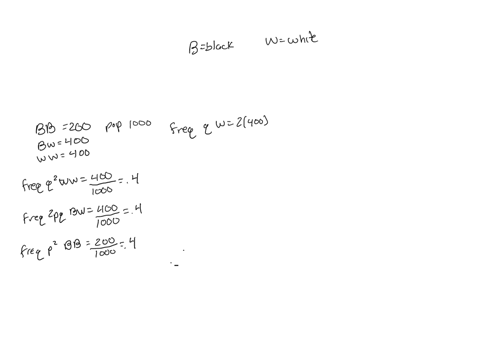 B=black W=white
BB=200 pop 1000 freq q W=2(400)
BW=400
WW=400
freq q² WW=400/1000=.4
freq 2pq BW=400/1000=.4
freq p² BB=200/1000=.4